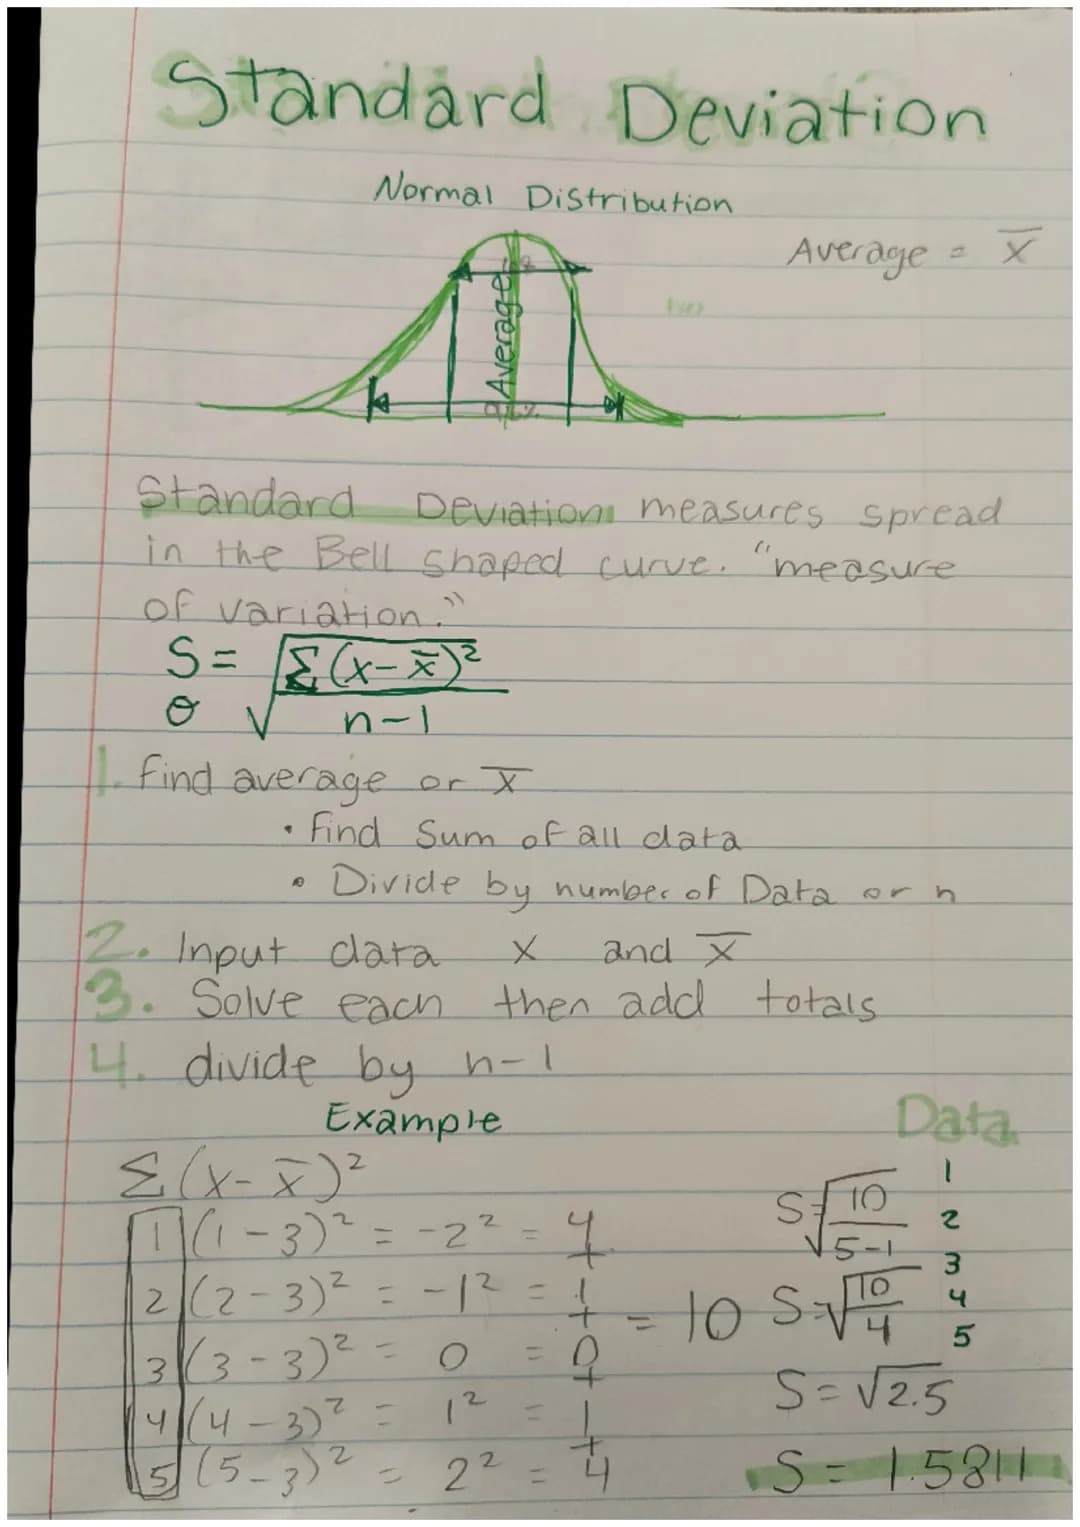 Standard Deviation
Normal Distribution
Average = x̅
Average
Standard Deviation measures spread
in the Bell shaped curve. "measure
of variation."
S = √Σ(x-x̅)²
n-1
1. find average or x̅
• find Sum of all data
• Divide by number of Data or n
2. Input data x and x̅
3. Solve each then add totals
4. divide by n-1
Example
Data
Σ(x-x̅)²
1 (1-3)² = -2² = 4 +
2 (2-3)² = -1² = 1 + = 10
3 (3-3)² = 0 = 0 +
4 (4-3)² = 1² = 1 +
5 (5-3)² = 2² = 4
S=√10
5-1
S=√10
4
S=√2.5
S = 1.5811
1
2
3
4
5